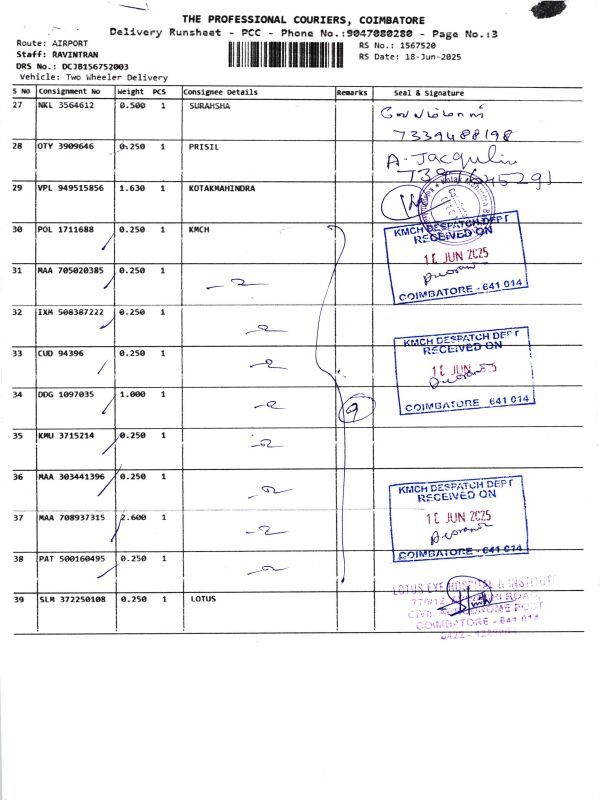 THE PROFESSIONAL COURIERS, COIMBATORE
Delivery Runsheet - PCC - Phone No.:9047080280 - Page No.:3
Route: AIRPORT
Staff: RAVINTRAN
DRS No.: DCJB156752003
Vehicle: Two Wheeler Delivery
RS No.: 1567520
RS Date: 18-Jun-2025
S No Consignment No Weight PCS Consignee Details Remarks Seal & Signature
27 NKL 3564612 0.500 1 SURAHSHA
7339488198
28 OTY 3909646 0.250 1 PRISIL A. Jacqulin
29 VPL 949515856 1.630 1 KOTAKMAHINDRA
30 POL 1711688 0.250 1 KMCH
KMCH DESPATCH DEPT
RECEIVED ON
JUN 2025
COIMBATORE - 641 014
31 MAA 705020385 0.250 1
32 IXM 508387222 0.250 1
33 CUD 94396 0.250 1
KMCH DESPATCH DEPT
RECEIVED ON
JUN
COIMBATORE - 641 014
34 DDG 1097035 1.000 1 9
35 KMU 3715214 0.250 1
36 MAA 303441396 0.250 1
KMCH DESPATCH DEPT
RECEIVED ON
JUN 2025
COIMBATORE - 641 014
37 MAA 708937315 2.600 1
38 PAT 500160495 0.250 1
39 SLM 372250108 0.250 1 LOTUS
LOTUS EYE HOSPITAL & INSTITUTE
COIMBATORE - 641 014